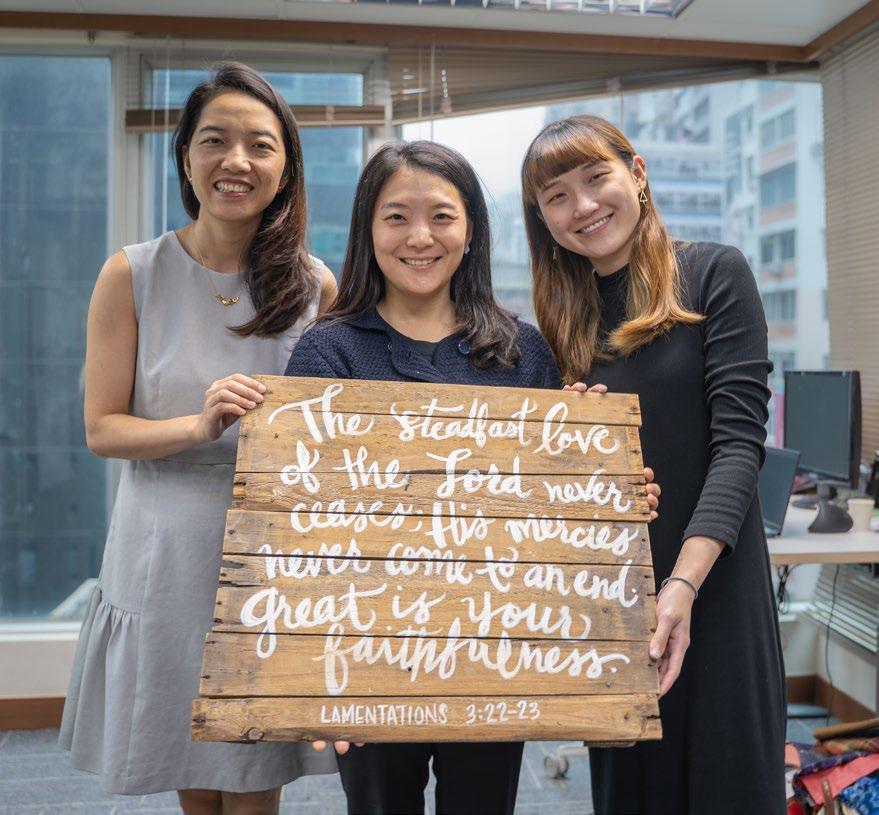 The steadfast love
of the Lord never
ceases; His mercies
never come to an end.
great is your
faithfulness.
LAMENTATIONS 3:22-23